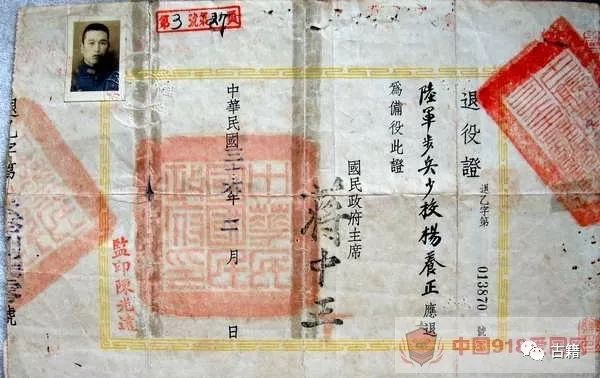 退役證
退乙字第 013870 號
陸軍步兵少校楊養正應退
爲備役此證
國民政府主席
蔣中正
中華民國三十六年二月 日
監印陳
中国918爱国网
古籍